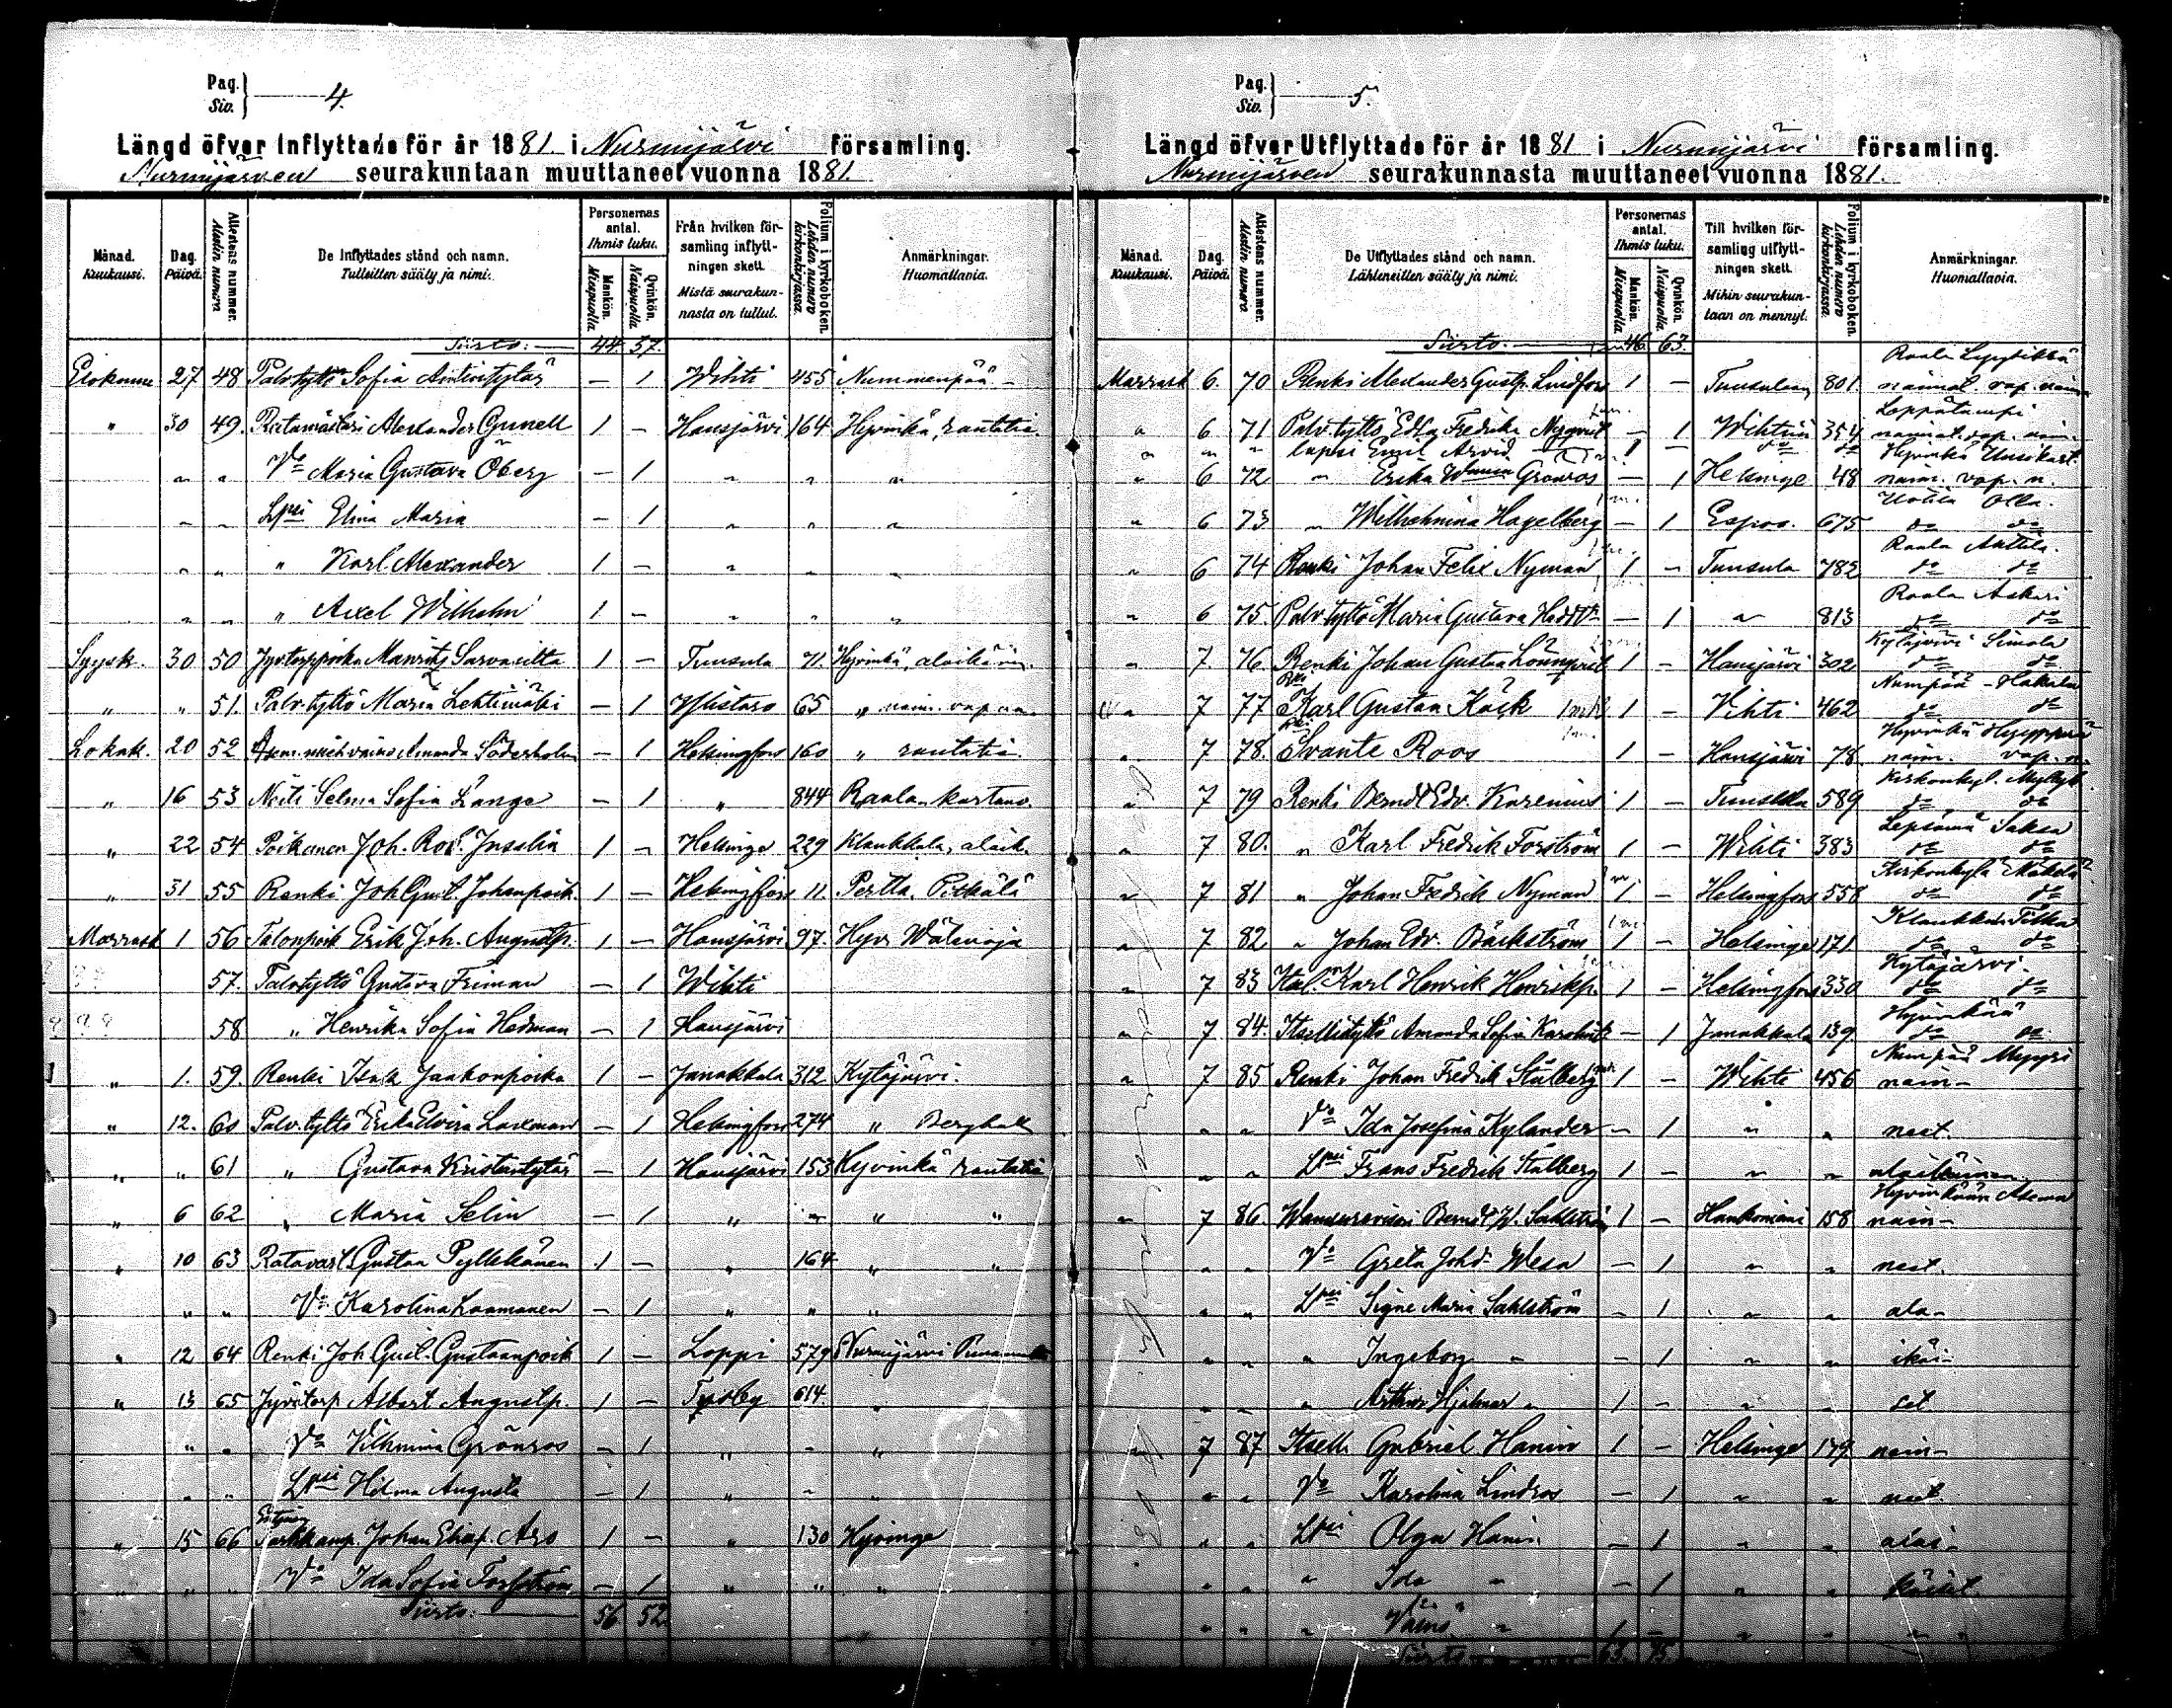 Pag. Siv. 4.
Längd öfver Inflyttade för år 1881. i Nurmijärvi församling.
Nurmijärven seurakuntaan muuttaneet vuonna 1881
Månad. Kuukausi. Dag. Päivä. Attestens nummer. Alustin numero De Inflyttades stånd och namn. Tulleitten sääty ja nimi. Personernas antal. Ihmis luku. Mankön. Miespuolia Qvinkön. Naispuolia Från hvilken församling inflyttningen skett. Mistä seurakunnasta on tullut. Folium i kyrkoboken. Lehden numero kirkonkirjassa. Anmärkningar. Huomattavia.
Siirto: 44. 57.
Elokuun 27 48 Palv.tyttö Sofia Antintytär — 1 Wihti 455 Nummenpää
" 30 49. Ratamästari Alexander Gunell 1 — Hausjärvi 164 Hyvinkä, rautatie.
" " Vo Maria Gustava Öberg — 1 " " "
" " Lpsi Elina Maria — 1 " " "
" " " Karl Alexander 1 — " " "
" " " Axel Wilhelm 1 — " " "
Syysk. 30 50 Mauritz 1 — Tuusula 71. Hyvinkä,
" " 51. Palv.tyttö Maria Lehtimäki — 1 Ylistaro 65 " naim. vap.
Lokak. 20 52 Amanda Söderholm — 1 Helsingfors 160 " rautatie
" 16 53 Neiti Selma Sofia Lange — 1 " 844 Raalan kartano
" 22 54 Poikanen Joh. Rob. 1 — Helsinge 229 Klaukkala, alaik.
" 31 55 Renki Joh Gust. Johanpoik. 1 — Helsingfors 11. Pertta.
Marrask 1 56 Talonpoik Erik Joh. Augustp. 1 — Hausjärvi 97. Hyv.
57. Palvtyttö Gustava Friman — 1 Wihti
58 " Henrika Sofia Hedman — 1 Hausjärvi
" 1. 59. Renki Isak Jaakonpoika 1 — Janakkala 312 Kytäjärvi.
" 12. 60 Palv.tyttö Erika Elvira Laxman — 1 Helsingfors 274 " Berghall
" " 61 " Gustava Kristiantytär — 1 Hausjärvi 153 Hyvinkä rautatie
" 6 62 " Maria Selin — 1 " " " "
" 10 63 Ratavart. Gustaa Pylkkänen 1 — " 164 " "
" " Vo Karolina Laamanen — 1 " " "
" 12 64 Renki Joh Gust. Gustaanpoik 1 — Loppi 579 Nurmijärvi
" 13 65 Albert Augustp. 1 — Tusby 614. "
" " Vo Vilhmina Grönros — 1 " " "
" " Lpsi Hilma Augusta — 1 " " "
" 15 66 Johan Eliap. Aro 1 — " 130 Hyvinge
" " Vo Ida Sofia Forsström — 1 " " "
Siirto: 56 52
Pag. Siv. 5.
Längd öfver Utflyttade för år 1881 i Nurmijärvi församling.
Nurmijärven seurakunnasta muuttaneet vuonna 1881.
Månad. Kuukausi. Dag. Päivä. Attestens nummer. Alustin numero De Utflyttades stånd och namn. Lähteneitten sääty ja nimi. Personernas antal. Ihmis luku. Mankön. Miespuolia Qvinkön. Naispuolia Till hvilken församling utflyttningen skett. Mihin seurakuntaan on mennyt. Folium i kyrkoboken. Lehden numero kirkonkirjassa. Anmärkningar. Huomattavia.
Siirto. 46. 63.
Marrask 6. 70 Renki Alexander Gustp. Lindfors 1 — Tuusulaan 801. Raala
" 6 71 Palv.tyttö Edla Fredrika Nyqvist — 1 Wihtiin 354
" " " lapsi Emil Arvid 1 — do do
" 6 72 " Erika Wmina Grönros — 1 Helsinge 48 naim. vap. n.
" 6 73 " Wilhelmina Hagelberg — 1 Espoo. 675 do do
" 6 74 Renki Johan Felix Nyman 1 — Tuusula 782 Raala Anttila. do do
" 6 75. Palv.tyttö Maria Gustava — 1 " 813 Raala Askari do do
" 7 76. Renki Johan Gustaa Lönnqvist 1 — Hausjärvi 302 Kytäjärvi Simola do do
" 7 77 Karl Gustaa Käck 1 — Vihti 462 Numpää - Hakala do do
" 7 78. Svante Roos 1 — Hausjärvi 78. Hyvinkä Hyyppä naim. vap. n.
" 7 79 Renki Berndt Edv. Karenius 1 — Tuusula 589 Kirkonkyl. do do
" 7 80. " Karl Fredrik Forström 1 — Wihti 383 Lepsämä Saksa do do
" 7 81 " Johan Fredrik Nyman 1 — Helsingfors 558 Kirkonkylä Mäkelä do do
" 7 82 " Johan Edv. Bäckström 1 — Helsinge 171 Klaukkala do do
" 7 83 Karl Henrik Henrikp. 1 — Helsingfors 330 Kytäjärvi. do do
" 7. 84. Amanda Sofia — 1 Janakkala 139. Hyvinkää do do
" 7 85 Renki Johan Fredrik Stålberg 1 — Wihti 456 Numpää naim-
" " Vo Ida Josefina Kylander — 1 " " neet.
" " Lpsi Frans Fredrik Stålberg 1 — " " alaikäinen
" 7 86. Berndt W. Sahlström 1 — Hankoniemi 158 Hyvinkään Asema naim-
" " Vo Greta Johd. Wesa — 1 " " neet.
" " Lpsi Signe Maria Sahlström — 1 " " ala-
" " " Ingeborg " — 1 " " ikäi-
" " " Arthur Hjalmar " 1 — " " set
" 7 87 Itsell. Gabriel Hanin 1 — Helsinge 179. naim-
" " Vo Karolina Lindros — 1 " " neet.
" " Lpsi Olga Hanin — 1 " " alai-
" " " Ida " — 1 " " käiset.
" " " Väinö " 1 — " " "
Siirto 63. 75.